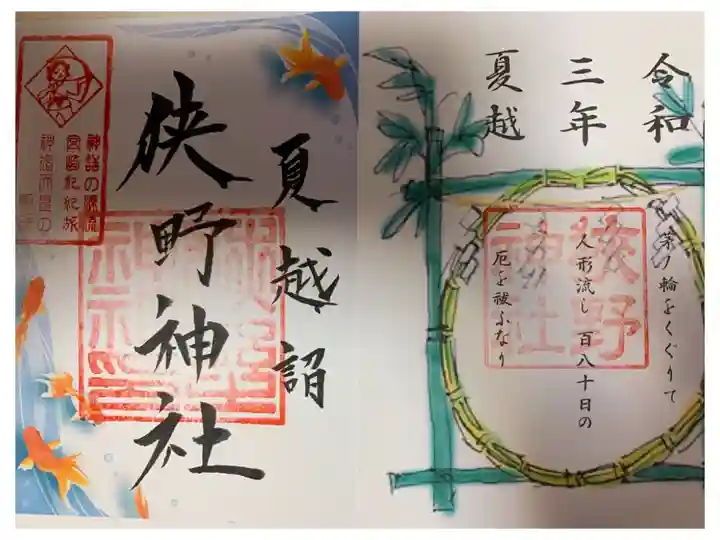 夏越詣
狹野神社
神話の源流
宮崎
令和
三年
夏越
茅ノ輪をくぐりて
人形流し 百八十日の
厄を祓ふなり
狭野
神社